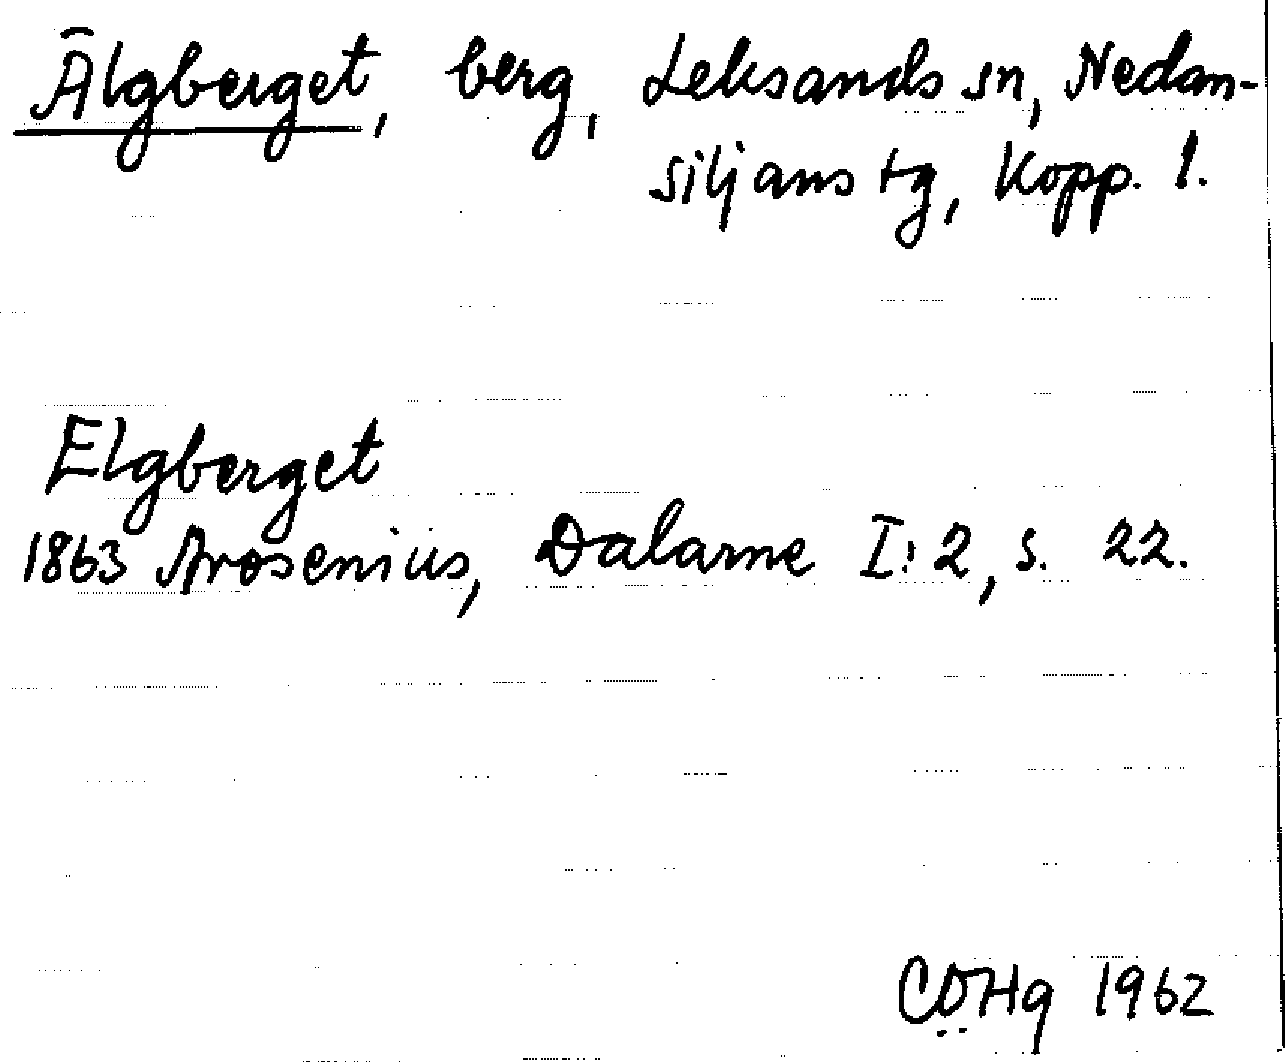 Älgberget, berg, Leksands sn, Nedan-
siljans tg, Kopp. l.
Elgberget
1863 Arosenius, Dalarne I:2, s. 22.
CDHg 1962